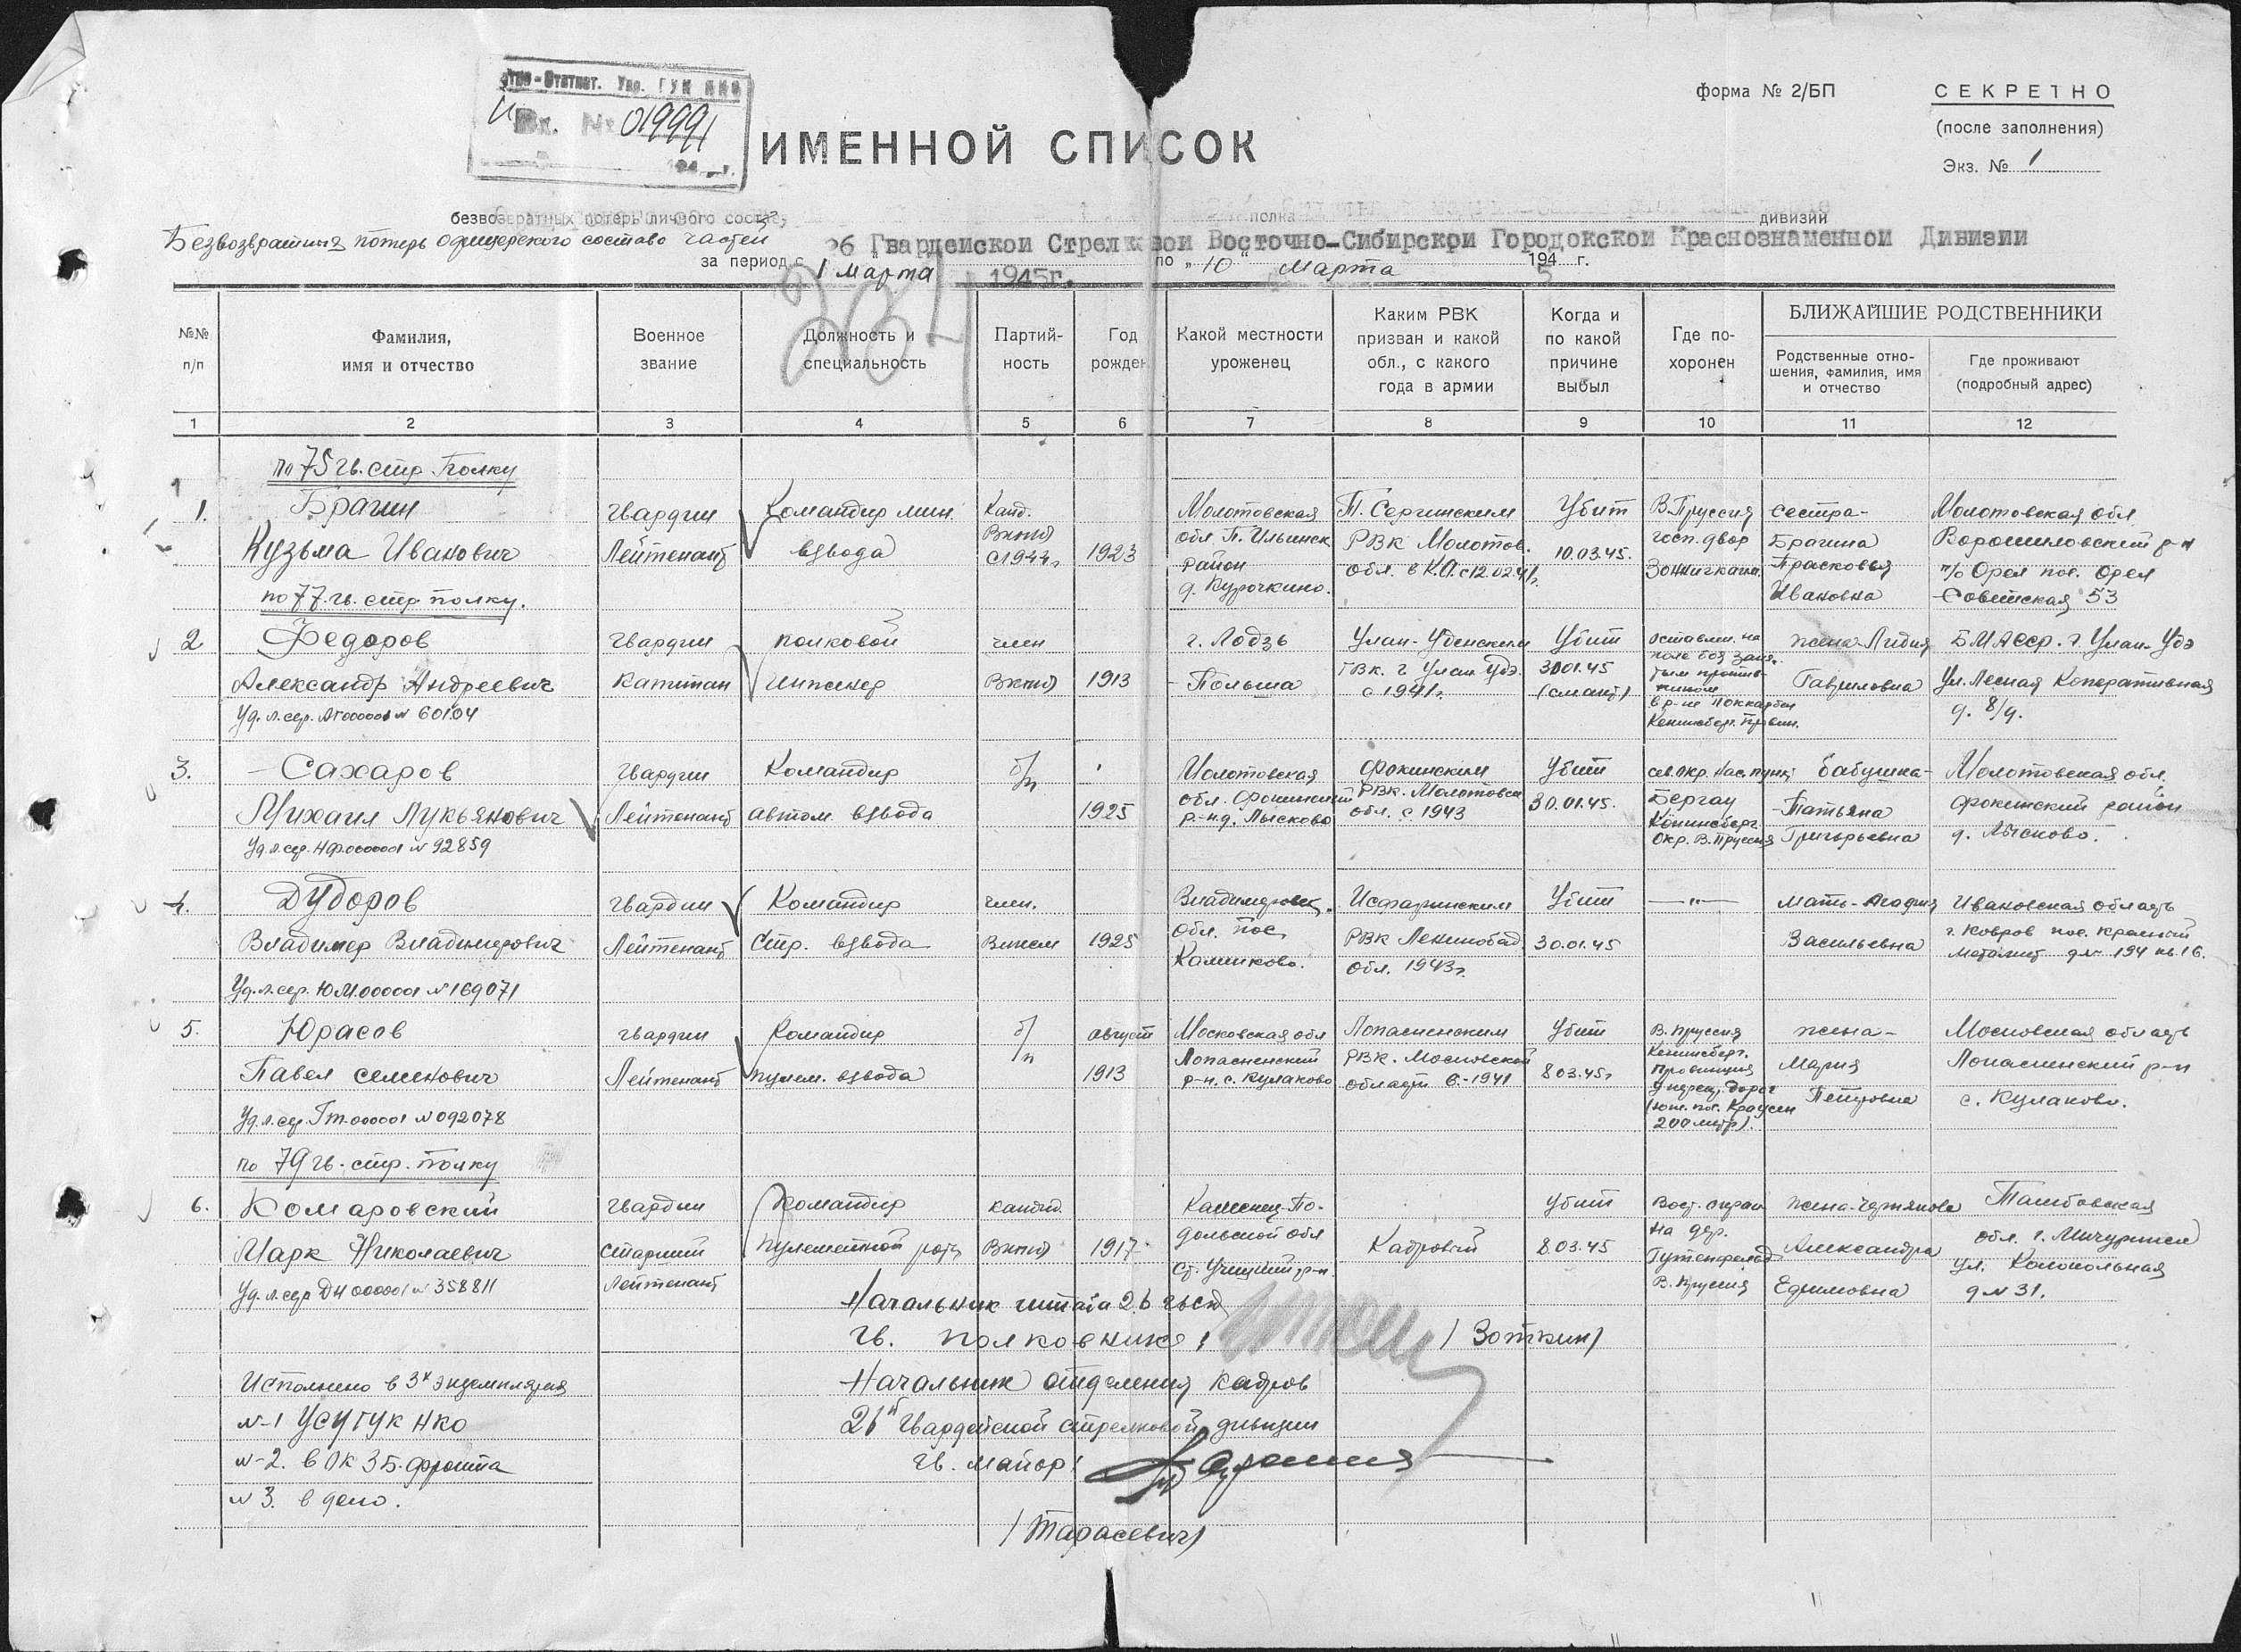 Стат. Упр. ГУК НКО
Вх. № 019991
194 г.
форма № 2/БП
СЕКРЕТНО
(после заполнения)
Экз. № 1
ИМЕННОЙ СПИСОК
безвозвратных потерь личного состава полка дивизии
Безвозвратных потерь офицерского состава частей 26 Гвардейской Стрелковой Восточно-Сибирской Городокской Краснознаменной Дивизии
за период с 1 марта 1945г. по „10“ марта 1945 г.
234
№№ п/п
Фамилия, имя и отчество
Военное звание
Должность и специальность
Партийность
Год рожден
Какой местности уроженец
Каким РВК призван и какой обл., с какого года в армии
Когда и по какой причине выбыл
Где похоронен
БЛИЖАЙШИЕ РОДСТВЕННИКИ
Родственные отношения, фамилия, имя и отчество
Где проживают (подробный адрес)
1 2 3 4 5 6 7 8 9 10 11 12
по 75 гв. стр. Полку
1. Брагин Гвардии Командир мин. Канд. Молотовская П. Сергинским Убит В.Пруссия сестра- Молотовская обл.
Кузьма Иванович Лейтенант взвода ВКП(б) с 1944г 1923 обл. П. Ильинск РВК Молотов. 10.03.45. госп. двор Брагина Ворошиловский р-н
район обл. в К.А. с 12.02.41г. Прасковья п/о Орел пос. Орел
д. Курочкино. Ивановна Советская 53
по 77 гв. стр. полку.
2 Федоров гвардии полковой член г. Лодзь Улан-Уденским Убит оставлен на жена-Лидия БМАССР. г. Улан-Удэ
Александр Андреевич капитан инженер ВКП(б) 1913 Польша ГВК. г Улан Удэ. 30.01.45 поле боя заня- Гавриловна Ул. Лесная Коперативная
Уд. л. сер. АГ 000001 № 60104 с 1941г. тым противником в р-не д. 8/9.
Кенигсберг. провин.
3. Сахаров гвардии Командир б/п Молотовская Фокинским Убит сев. окр. нас. пункт бабушка- Молотовская обл.
Михаил Лукьянович Лейтенант автом. взвода 1925 обл. Фокинский РВК. Молотовск 30.01.45. Бергау Татьяна Фокинский район
Уд. л. сер. НФ.000001 № 92859 р-н д. Лысково обл. с 1943 Кенигсберг окр. В.Пруссия Григорьевна д. Лысково.
4. Дудоров гвардии Командир член. Владимировск. Исфаринским Убит —"— мать-Агафия Ивановская область
Владимер Владимерович Лейтенант Стр. взвода 1925 обл. пос. РВК Ленинобад. 30.01.45 Васильевна г. Ковров пос. Красный
Камешково. обл. 1943г. металист д № 194 кв. 16.
Уд. л. сер. ЮМ.000001 № 169071
5. Юрасов гвардии Командир б/п август Московская обл Лопасненским Убит В. Пруссия жена- Московская область
Павел Семенович Лейтенант пулем. взвода 1913 Лопасненский РВК. Московской 8 03.45г Кенигсберг. Провинция Мария Лопасненский р-н
Уд. л. сер. Гт. 000001 № 092078 р-н. с. Кулаково области с-1941 у перек. дорог Петровна с. Кулаково.
200 метр).
по 79 гв. стр. полку
6. Комаровский гвардии Командир кандид. Каменец-По- Убит Вост. окраи- жена- Тамбовская
Марк Николаевич старший пулеметной роты ВКП(б) 1917 дольской обл Кадровый 8.03.45 на дер. Александра обл. г. Мичуринск
Уд. л. сер ДН 000001 № 358811 Лейтенант В. Пруссия Ефимовна ул. Колокольная
д № 31.
Начальник штаба 26 гвсд
Гв. полковник: /Зоткин/
Исполнено в 3х экземплярах Начальник отделения кадров
№-1 УСУ ГУК НКО 26й Гвардейской стрелковой дивизии
№-2. в ОК 3 Б. фронта Гв. Майор:
№ 3. в дело.
/Тарасевич/